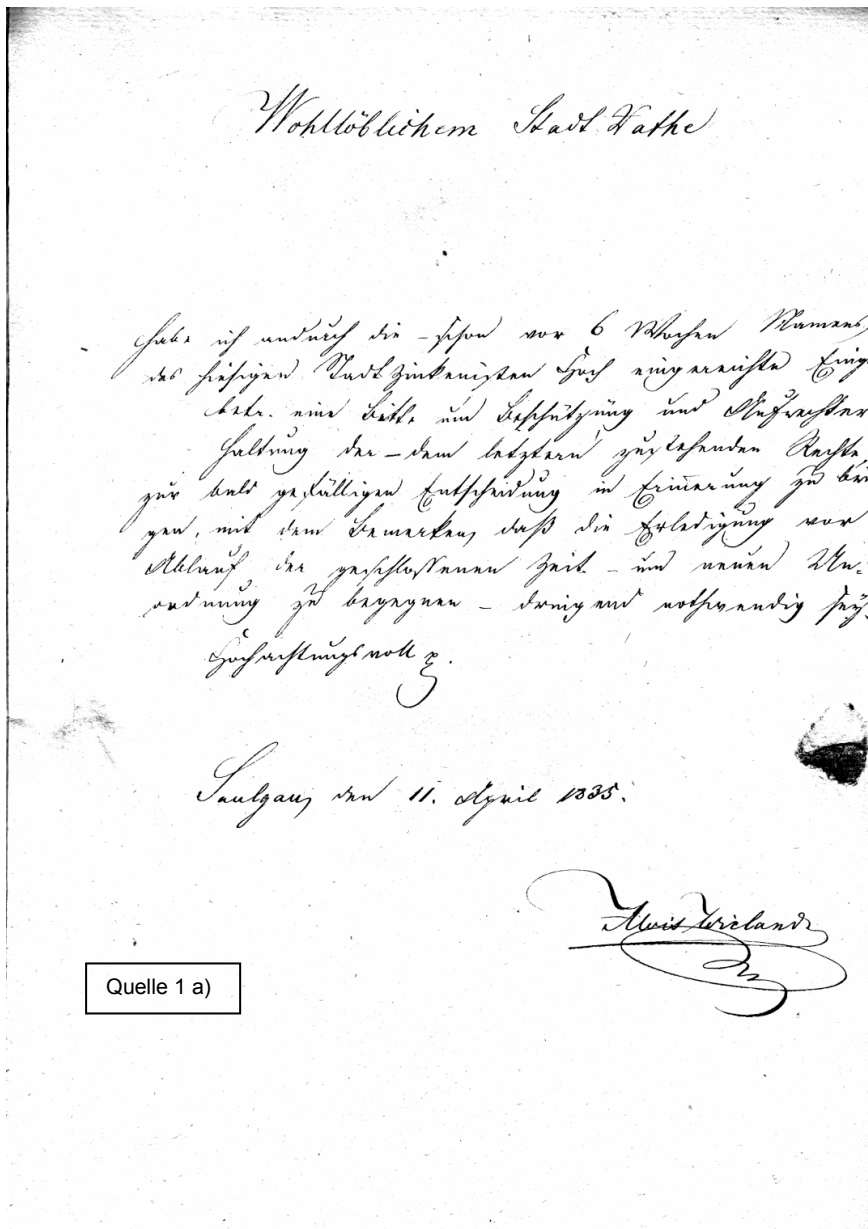 Wohllöblichem Stadt Rathe
habe ich andurch die – schon vor 6 Wochen Namens
des hiesigen Stadt Zinkenisten Hoch eingereichte Eing
betr. eine Bitte um Beschützung und Aufrechter
haltung der – dem letztern zustehenden Rechte,
zur bald gefälligen Entscheidung in Erinnerung zu brin
gen, mit dem Bemerken, daß die Erledigung vor
Ablauf der geschlossenen Zeit – um neuen Un-
ordnung zu begegnen – dringend nothwendig sey.
Hochachtungsvoll
Saulgau, den 11. April 1835.
Alois Wieland
Quelle 1 a)